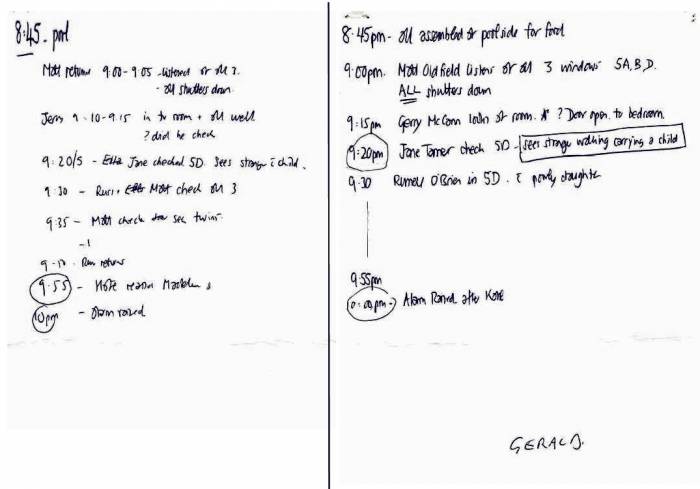 8:45 - pool
Matt returns 9:00 - 9:05 - listened at all 3.
- all shutters down.
Jerry 9 - 10 - 9.15 in to room + all well
? did he check
9:20/5 - Ella Jane checked 5D. Sees stranger & child.
9:30 - Russ + Ella Matt check all 3
9:35 - Matt check see twins.
Russ returns
9:55 - Kate
10pm - Alarm raised
8:45pm - all assembled at poolside for food
9:00pm. Matt Oldfield listens at all 3 windows 5A, B, D.
ALL shutters down
9:15pm Gerry McCann looks at room A ? Door open to bedroom
9:20pm Jane Tanner check 5D - Sees stranger walking carrying a child
9:30 Russell O'Brien in 5D. poorly daughter
9:55pm
10:00pm - Alarm Raised after Kate
GERALD.